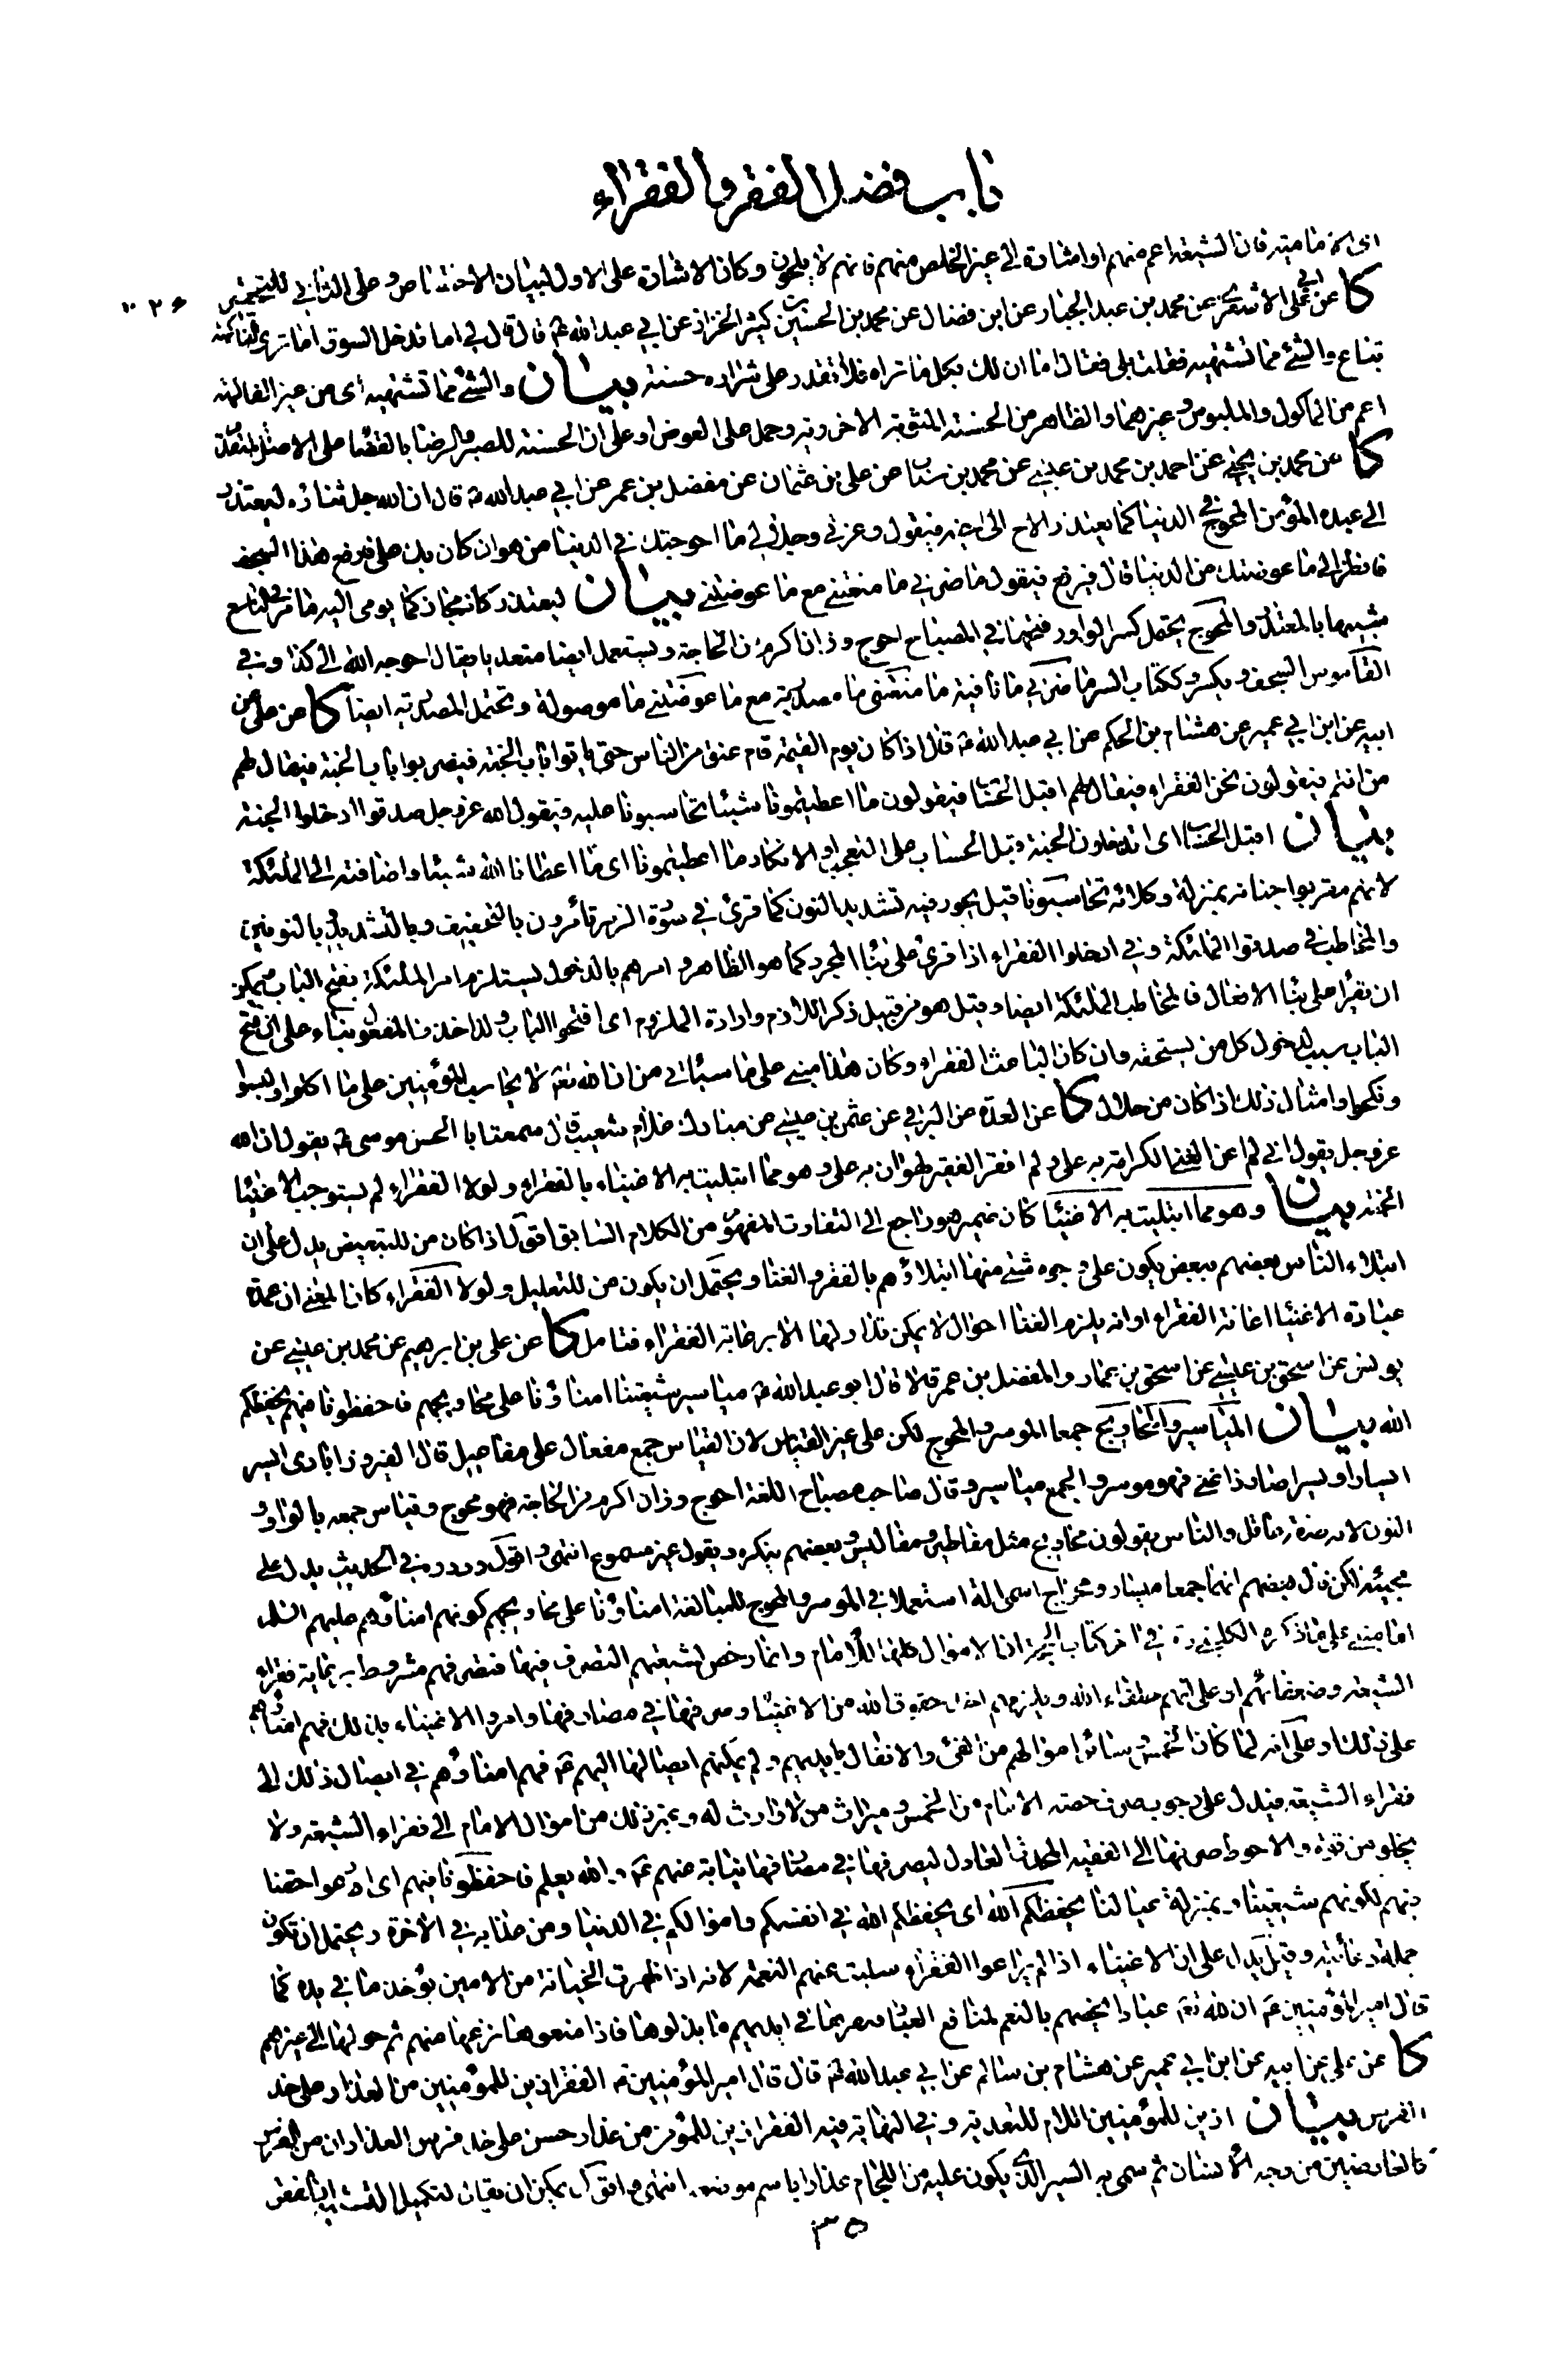 باب فضل الفقر والفقراء
اى الامامية فان الشيعة اعم منهم او اشارة الى غير الخلص منهم فانهم لا يلحون وكان الاشارة على الاول لبيان الاختصاص وعلى الثاني للتحقير
كا عن ابى على الاشعرى عن محمد بن عبد الجبار عن ابن فضال عن محمد بن الحسين بن كثير الخزاز عن ابي عبد الله ع قال قال لي اما تدخل السوق اما ترى الفاكهة
تباع والشئ مما تشتهيه فقلت بلى فقال اما ان لك بكل ما تراه فلا تقدر على شراه حسنة بيان والشئ مما تشتهيه أى من غير الفاكهة
اعم من الماكول والملبوس وغيرهما والظاهر من الحسنة المثوبة الاخروية وحمل على العوض او على ان الحسنة للصبر والرضا بالقضا على الاصل
كا عن محمد بن يحيى عن احمد بن محمد بن عيسى عن محمد بن سنان عن على بن عثمان عن مفضل بن عمر عن ابي عبد الله ع قال ان الله جل ثناؤه ليعتذر
الى عبده المؤمن المحوج في الدنيا كما يعتذر الاخ الى اخيه فيقول وعزتي وجلالي ما احوجتك في الدنيا من هوان كان بك على فارفع هذا السجف
فانظر الى ما عوضتك من الدنيا قال فيرفع فيقول ما ضرني ما منعتني مع ما عوضتني بيان ليعتذر كانه مجاز كما يومى اليه ما مر في التاسع
شبيها بالمعتذر والمحوج يحتمل كسر الواو وفتحها في المصباح احوج وزان اكرم من الحاجة ويستعمل ايضا متعديا يقال احوجه الله الى كذا وفي
القاموس السجف ويكسر وككتاب الستر ما ضرني ما نافية ما منعتني ما مصدرية مع ما عوضتني ما موصولة وتحتمل المصدرية ايضا كا عن على عن
ابيه عن ابن ابي عمير عن هشام بن الحكم عن ابي عبد الله ع قال اذا كان يوم القيمة قام عنق من الناس حتى ياتوا باب الجنة فيضربوا باب الجنة فيقال لهم
من انتم فيقولون نحن الفقراء فيقال لهم اقبل الحساب فيقولون ما اعطيتمونا شيئا تحاسبونا عليه فيقول الله عز وجل صدقوا ادخلوا الجنة
بيان اقبل الحساب اى اتدخلون الجنة قبل الحساب على التعجب او الانكار ما اعطيتمونا اى ما اعطانا الله شيئا واضافته الى الملئكة
لانهم مقربوا جنابه بمنزلة وكلائه تحاسبونا قيل يجوز فيه تشديد النون كما قرئ في سورة الزمر تأمرون بالتخفيف وبالتشديد وبالنونين
والمخاطب في صدقوا الملئكة وفي ادخلوا الفقراء اذا قرئ على بناء المجرد كما هو الظاهر وامرهم بالدخول يستلزم امر الملئكة بفتح الباب ويمكن
ان يقرا على بناء الافعال فالمخاطب الملئكة ايضا وقيل هو من قبيل ذكر اللازم وارادة الملزوم اى افتحوا الباب ولذا حذف المفعول بناء على ان فتح
الباب سبب لدخول كل من يستحقه وان كان الباعث الفقراء وكان هذا مبنى على ما سيأتي من ان الله تع لا يحاسب المؤمنين على ما اكلوا ولبسوا
ونكحوا وامثال ذلك اذا كان من حلال كا عن العدة عن البرقي عن عثمن بن عيسى عن مبارك غلام شعيب قال سمعت ابا الحسن موسى ع يقول ان الله
عز وجل يقول اني لم اغن الغنى لكرامة به على ولم افقر الفقير لهوان به على وهو مما ابتليت به الاغنياء بالفقراء ولولا الفقراء لم يستوجب الاغنيا
الجنة بيان وهو مما ابتليت به الاغنيا كان ضمير هو راجع الى التفاوت المفهوم من الكلام السابق اقول اذا كان من للتبعيض يدل على ان
ابتلاء الناس بعضهم ببعض يكون على وجوه شتى منها ابتلاؤهم بالفقر والغنا ويحتمل ان يكون من للتعليل ولولا الفقراء كان المعنى ان عمدة
عبادة الاغنيا اعانة الفقراء او انه يلزم الغنا احوال لا يمكن تداركها الا برعاية الفقراء فتامل كا عن على بن ابرهيم عن محمد بن عيسى عن
يونس عن اسحق بن عيسى عن اسحق بن عمار والمفضل بن عمر قالا قال ابو عبد الله ع مياسير شيعتنا امناؤنا على محاويجهم فاحفظونا فيهم يحفظكم
الله بيان المياسير والمحاويج جمعا الموسر والمحوج لكن على غير القياس لان القياس جمع مفعال على مفاعيل قال الفيروزابادى ايسر
ايسارا ويسرا صار ذا غنى فهو موسر والجمع مياسير وقال صاحب مصباح اللغة احوج وزان اكرم من الحاجة فهو محوج وقياس جمعه بالواو و
النون لانه صفة عاقل والناس يقولون محاويج مثل مفاطير ومفاليس وبعضهم ينكره ويقول غير مسموع انتهى واقول وروده في الحديث يدل على
مجيئه لكن قال بعضهم انهما جمعا ميسار ومحواج اسمى الة استعملا في الموسر والمحوج للمبالغة امناؤنا على محاويجهم كونهم امناؤهم عليهم السلم
اما مبنى على ما ذكره الكليني ره في اخر كتاب الحجة ان الاموال كلها للامام وانما رخص لشيعتهم التصرف فيها فتصرفهم مشروط برعاية فقراء
الشيعة وضعفائهم او على انهم خلفاء الله ويلزمهم اخذ حقوق الله من الاغنيا وصرفها في مصارفها وامروا الاغنياء بذلك فهم امناؤهم
على ذلك او على انه لما كان الخمس وسائر اموالهم من الفئ والانفال بايديهم ولم يمكنهم ايصالها اليهم ع فهم امناؤهم في ايصال ذلك الى
فقراء الشيعة فيدل على وجوب صرف حصة الامام من الخمس وميراث من لا وارث له وغير ذلك من اموال الامام الى فقراء الشيعة ولا
يخلو من قوة والاحوط صرفها الى الفقيه المحدث العادل ليصرفها في مصارفها نيابة عنهم ع والله يعلم فاحفظونا فيهم اى ارعوا حقنا
فيهم لكونهم شيعتنا وبمنزلة عيالنا يحفظكم الله اى يحفظكم الله في انفسكم واموالكم في الدنيا ومن عذابه في الأخرة ويحتمل ان تكون
جملة دعائية وقيل يدل على ان الاغنياء اذا لم يراعوا الفقراء سلبت عنهم النعمة لانه اذا ظهرت الخيانة من الامين يؤخذ ما في يده كما
قال امير المؤمنين ع ان لله تع عبادا يخصهم بالنعم لمنافع العباد فيقرها في ايديهم ما بذلوها فاذا منعوها نزعها منهم ثم حولها الى غيرهم
كا عن على عن ابيه عن ابن ابي عمير عن هشام بن سالم عن ابي عبد الله ع قال قال امير المؤمنين ع الفقر ازين للمؤمنين من العذار على خد
الفرس بيان ازين للمؤمنين اللام للتعدية وفي النهاية فيه الفقر ازين للمؤمن من عذار حسن على خد فرس العذاران من الفرس
كالعارضين من وجه الأنسان ثم سمى به السير الذى يكون عليه من اللجام عذارا باسم موضعه انتهى واقول يمكن ان يقال لتكميل التشبيه ان الفقر
٣٥